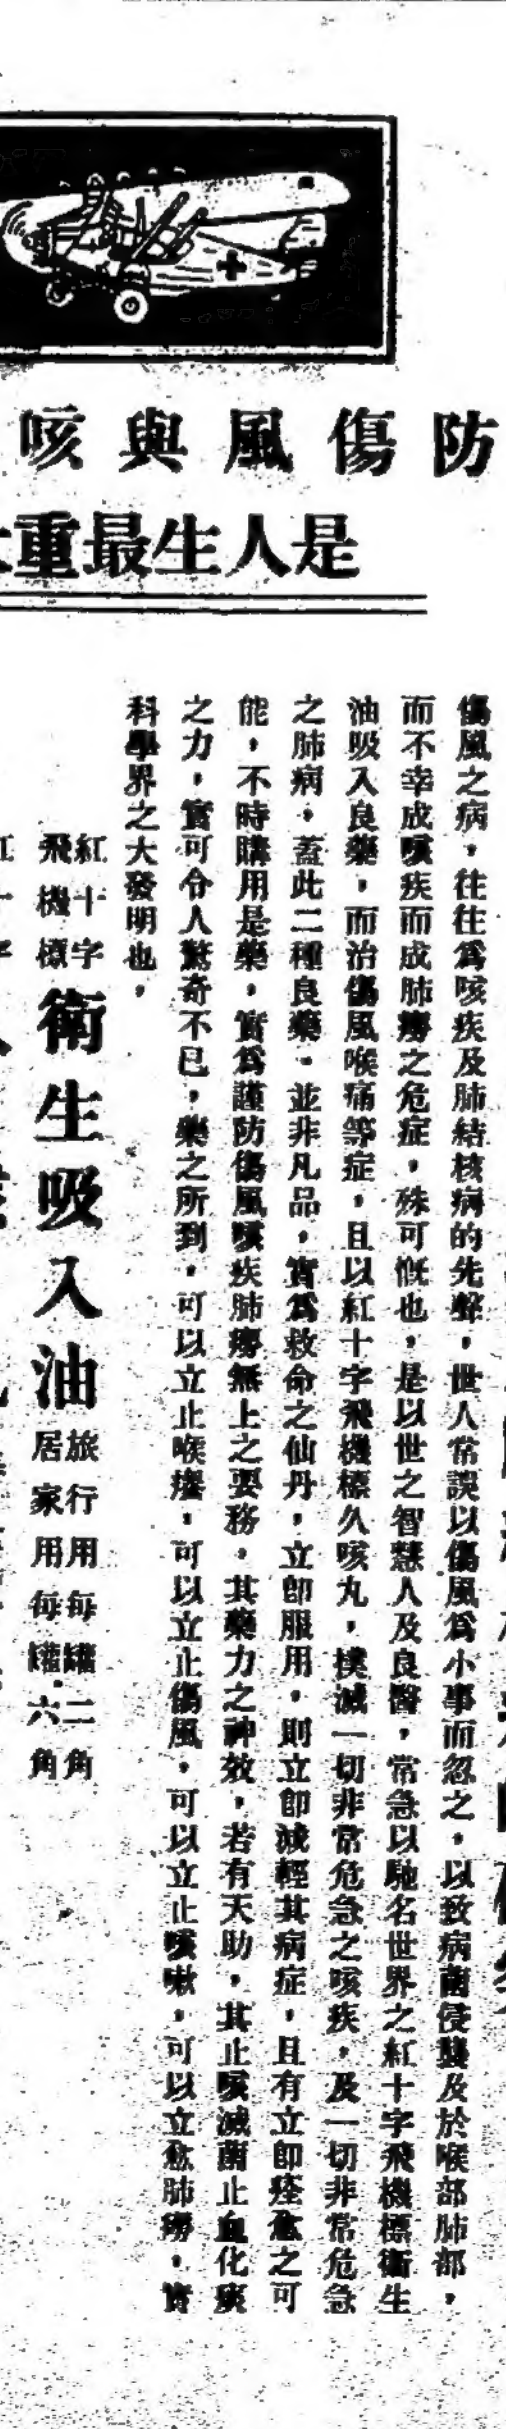 防傷風與咳
是人生最重
傷風之病，往往爲咳疾及肺結核病的先聲，世人常誤以傷風爲小事而忽之，以致病菌侵襲及於喉部肺部，
而不幸成咳疾而成肺癆之危症，殊可慨也，是以世之智慧人及良醫，常急以馳名世界之紅十字飛機標衞生
油吸入良藥，而治傷風喉痛等症，且以紅十字飛機標久咳丸，撲滅一切非常危急之咳疾，及一切非常危急
之肺病，蓋此二種良藥，並非凡品，實爲救命之仙丹，立卽服用，則立卽減輕其病症，且有立卽痊愈之可
能，不時購用是藥，實爲謹防傷風咳疾肺癆無上之要務，其藥力之神效，若有天助，其止咳滅菌止血化痰
之力，實可令人驚奇不已，藥之所到，可以立止喉癢，可以立止傷風，可以立止咳嗽，可以立愈肺癆，實
科學界之大發明也，
紅十字
飛機標
衞生吸入油
旅行用每罐二角
居家用每罐六角